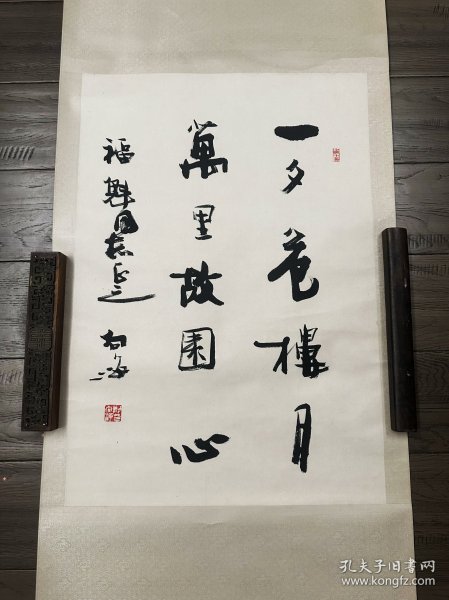 一夕危樓月
萬里故園心
福魁同志正之
孔夫子旧书网
www.kongfz.com